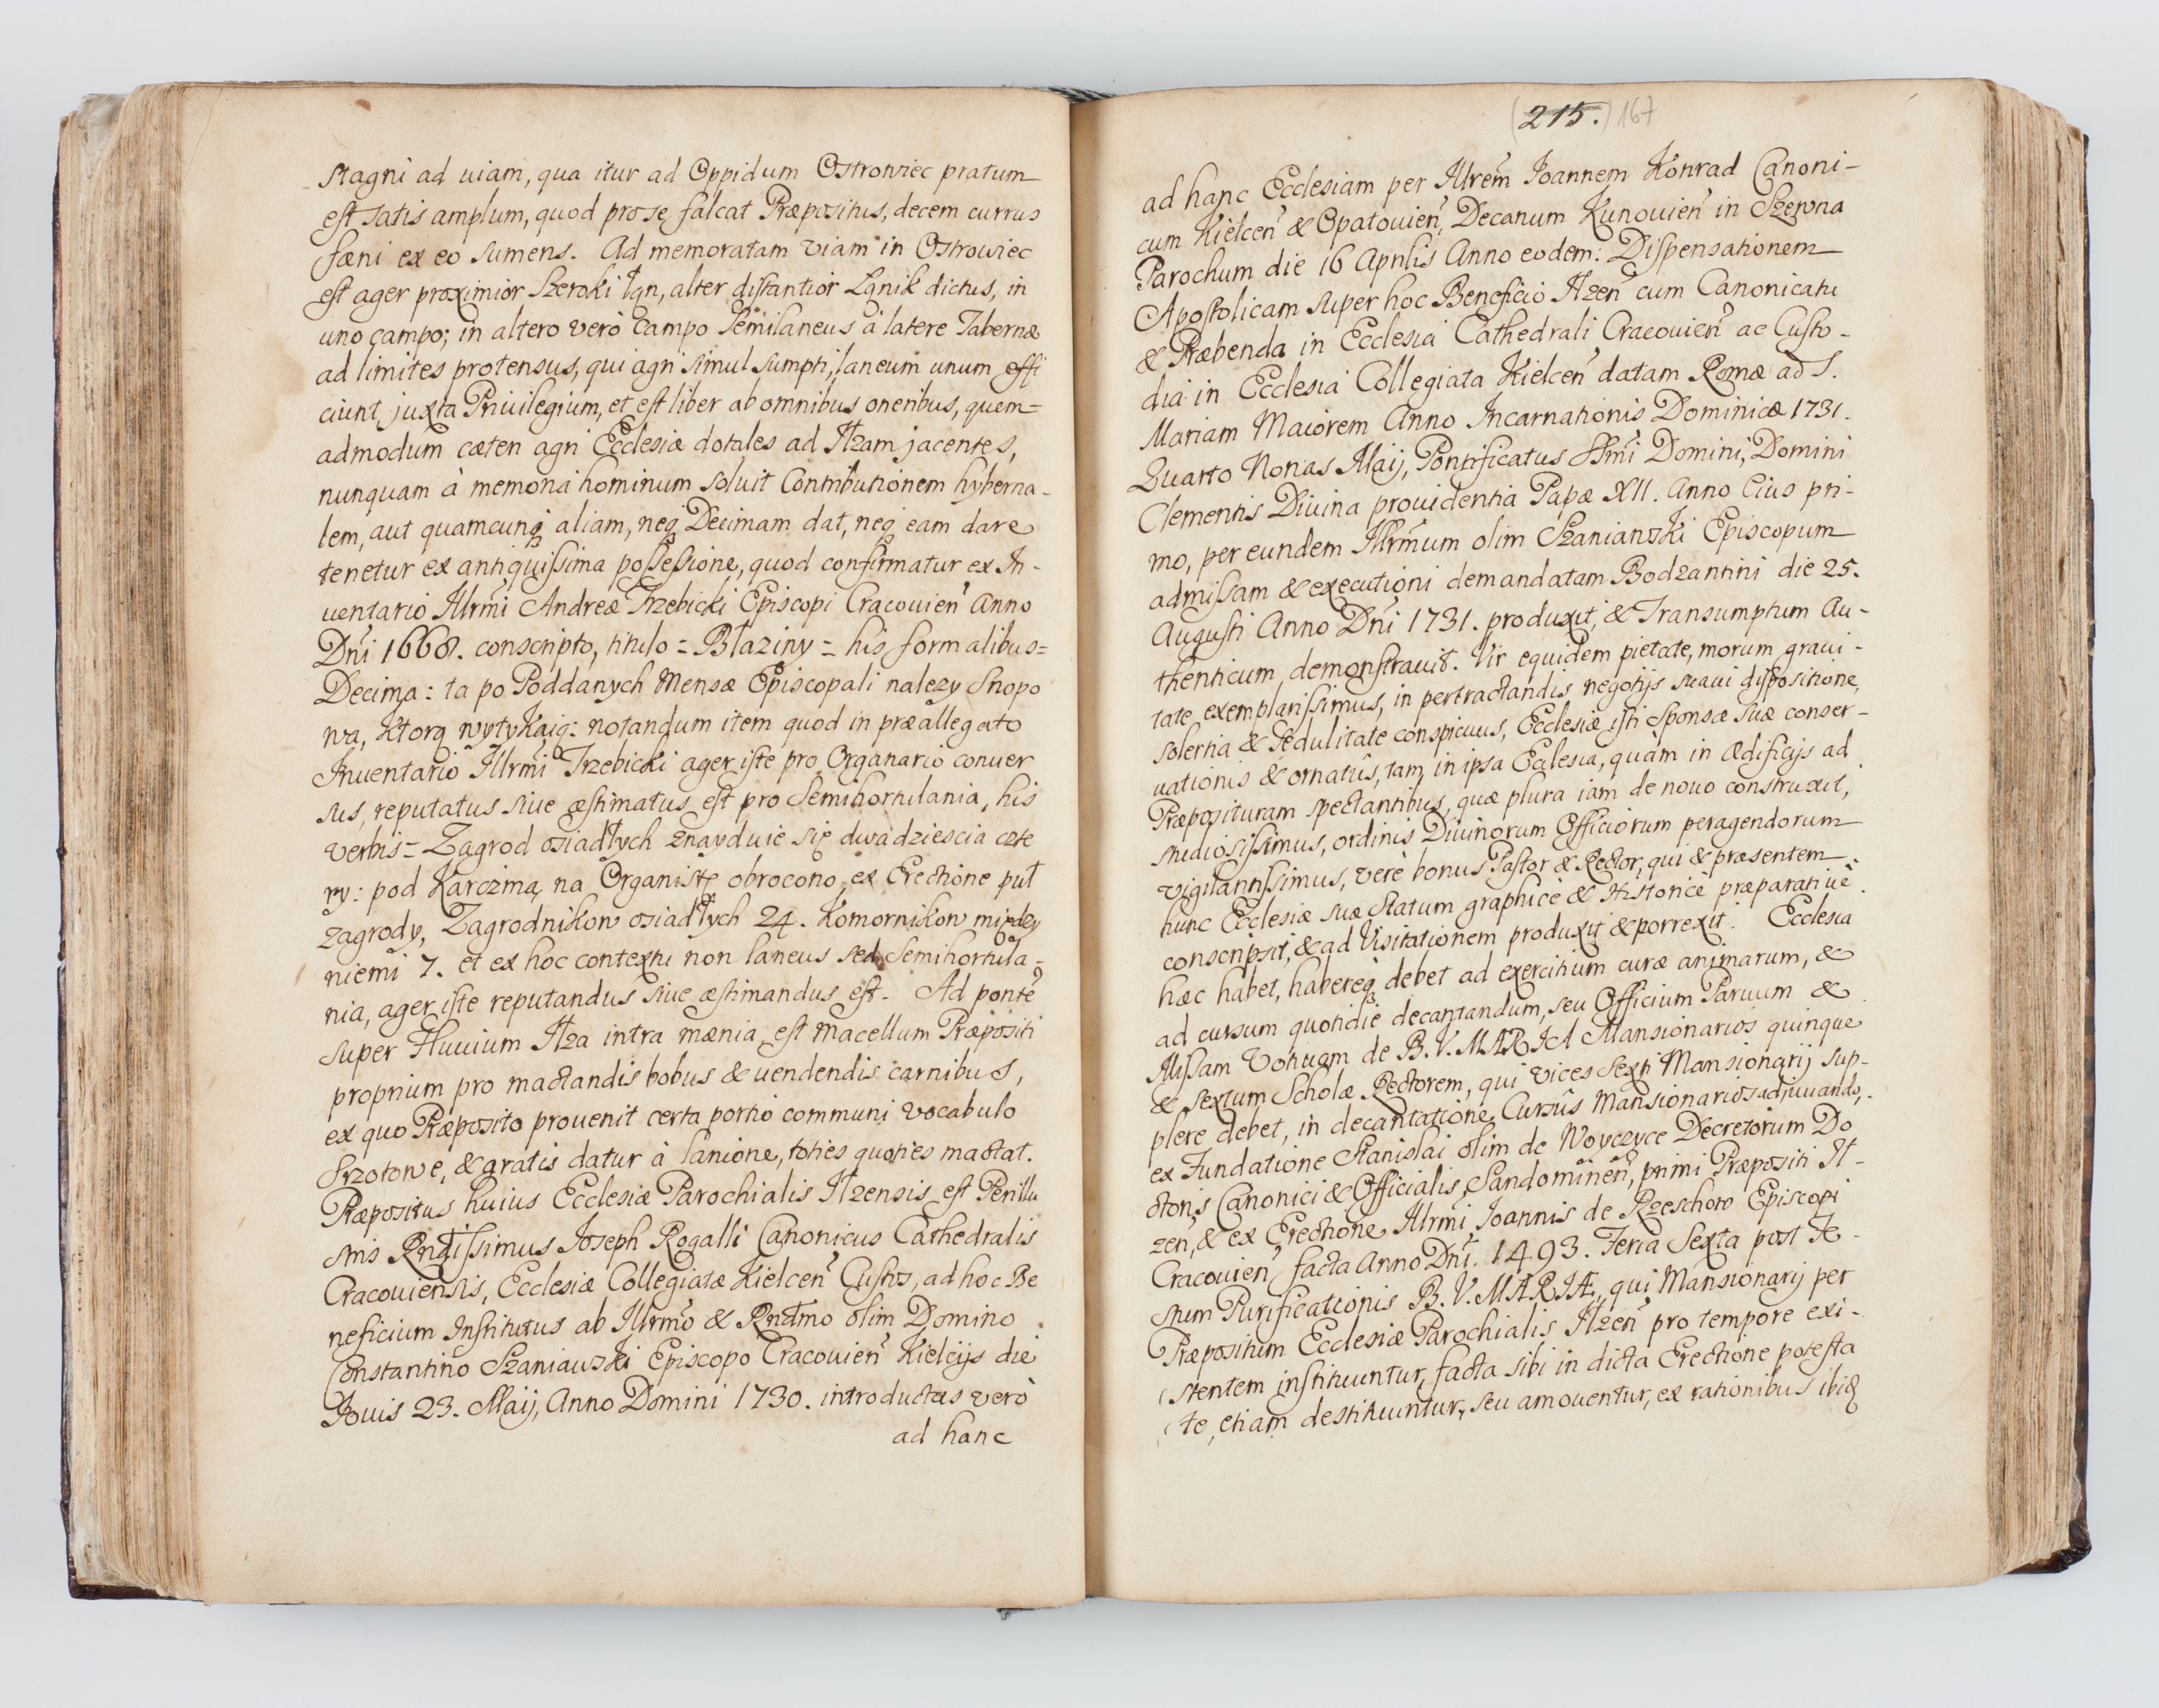 stagni ad uiam, qua itur ad Oppidum Ostrowiec pratum
est satis amplum, quod pro se falcat Præpositus, decem currus
fæni ex eo sumens. Ad memoratam viam in Ostrowiec
est ager proximior Szeroki Łąn, alter distantior Łąnik dictus, in
uno campo; in altero verò Campo Semilaneus à latere Tabernæ
ad limites protensus, qui agri simul sumpti, laneum unum effi
ciunt juxta Priuilegium, et est liber ab omnibus oneribus, quem=
admodum cæteri agri Ecclesiæ dotales ad Iłzam jacentes,
nunquam à memoria hominum soluit Contributionem hyberna-
lem, aut quamcunq́ aliam, neq́ Decimam dat, neq́ eam dare
tenetur ex antiquissima possessione, quod confirmatur ex In-
uentario Illrm̃i Andreæ Trzebicki Episcopi Cracouieñ Anno
Dñi 1668. conscripto, titulo = Błaziny = his formalibus=
Decima: ta po Poddanych Mensæ Episcopali nalezy Snopo
wa, Ktorą wytykaią: notandum item quod in præallegato
Inuentario Illrm̃i Trzebicki ager iste pro Organario conuer
sus, reputatus siue æstimatus est pro Semihortulania, his
verbis = Zagrod osiadłych znayduie się dwadziescia czte
ry: pod Karczmą na Organistę obrocono, ex Erectione puł
zagrody, Zagrodnikow osiadłych 24. Komornikow między
niemi 7. et ex hoc contextu non laneus sed Semihortula=
nia, ager iste reputandus siue æstimandus est. Ad ponte᷉
super Fluuium Iłza intra mænia est macellum Præpositi
proprium pro mactandis bobus & uendendis carnibus,
ex quo Præposito prouenit certa portio communi vocabulo
Srzotowe, & gratis datur à lanione, toties quoties mactat.
Præpositus huius Ecclesiæ Parochialis Iłzensis est Perillu
stris Rndissimus Joseph Rogalli Canonicus Cathedralis
Cracouiensis, Ecclesiæ Collegiatæ Kielceñ Custos, ad hoc Be
neficium Institutus ab Illrm̃o & Rndmo olim Domino
Constantino Szaniawski Episcopo Cracouieñ Kielcijs die
Jouis 23. Maij, Anno Domini 1730. introductus verò
ad hanc
(215.) 167
ad hanc Ecclesiam per Illrem̃ Joannem Konrad Canoni-
cum Kielceñ & Opatouieñ, Decanum Kunouieñ in Szewna
Parochum die 16 Aprilis Anno eodem: Dispensationem
Apostolicam super hoc Beneficio Iłzeñ cum Canonicatu
& Præbenda in Ecclesia Cathedrali Cracouieñ ac Custo-
dia in Ecclesia Collegiata Kielceñ datam Romæ ad S.
Mariam Maiorem Anno Incarnationis Dominicæ 1731.
Quarto Nonas Maij, Pontificatus SSm̃i Domini, Domini
Clementis Diuina prouidentia Papæ XII. Anno Eius pri-
mo, per eundem Illrm̃um olim Szaniawski Episcopum
admissam & executioni demandatam Bodzantini die 25.
Augusti Anno Dñi 1731. produxit, & Transumptum Au-
thenticum demonstrauit. Vir equidem pietate, morum graui-
tate exemplarissimus, in pertractandis negotijs suaui dispositione,
solertia & sedulitate conspicuus, Ecclesiæ isti Sponsæ suæ conser-
uationis & ornatûs, tam in ipsa Ecclesia, quàm in Ædificijs ad
Præposituram spectantibus, quæ plura iam de nouo construxit,
studiosissimus, ordinis Diuinorum Officiorum peragendorum
vigilantissimus, verè bonus Pastor & Rector, qui & præsentem
hunc Ecclesiæ suæ Statum graphicè & Historicè præparatiuè
conscripsit, & ad Visitationem produxit & porrexit. Ecclesia
hæc habet, habereq́ debet ad exercitium curæ animarum, &
ad cursum quotidie decantandum, seu Officium Paruum &
Missam Votiuam de B. V. MARIA Mansionarios quinque
& sextum Scholæ Rectorem, qui vices sexti Mansionarij sup-
plere debet, in decantatione Cursûs Mansionarios adjuuando,
ex Fundatione Stanislai olim de Woyczyce Decretorum Do
ctoris Canonici & Officialis Sandomineñ, primi Præpositi Ił-
zeñ, & ex Erectione Illrm̃i Joannis de Rzeschow Episcopi
Cracouieñ facta Anno Dñi. 1493. Feria Sexta post Fe-
stum Purificationis B. V. MARIÆ, qui Mansionarij per
Præpositum Ecclesiæ Parochialis Iłzeñ pro tempore exi-
stentem instituuntur, facta sibi in dicta Erectione potesta
te, etiam destituuntur, seu amouentur, ex rationibus ibid